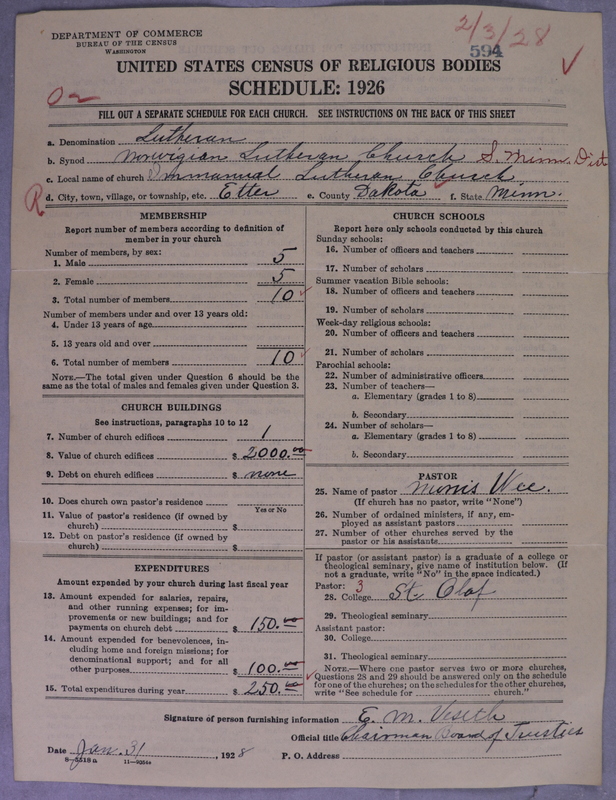 DEPARTMENT OF COMMERCE
BUREAU OF THE CENSUS
WASHINGTON
2/3/28
594
UNITED STATES CENSUS OF RELIGIOUS BODIES
SCHEDULE: 1926
FILL OUT A SEPARATE SCHEDULE FOR EACH CHURCH. SEE INSTRUCTIONS ON THE BACK OF THIS SHEET
a. Denomination Lutheran
b. Synod Norvigian Lutheran Church S. Minn. Dist
c. Local name of church Immanual Lutheran Church
R
d. City, town, village, or township, etc. Etter e. County Dakota f. State Minn.
MEMBERSHIP
Report number of members according to definition of
member in your church
Number of members, by sex:
1. Male 5
2. Female 5
3. Total number of members 10
Number of members under and over 13 years old:
4. Under 13 years of age
5. 13 years old and over
6. Total number of members 10
NOTE.—The total given under Question 6 should be the
same as the total of males and females given under Question 3.
CHURCH BUILDINGS
See instructions, paragraphs 10 to 12
7. Number of church edifices 1
8. Value of church edifices $ 2000.00
9. Debt on church edifices $ none
10. Does church own pastor's residence
Yes or No
11. Value of pastor's residence (if owned by
church) $
12. Debt on pastor's residence (if owned by
church) $
EXPENDITURES
Amount expended by church during last fiscal year
13. Amount expended for salaries, repairs,
and other running expenses; for im-
provements or new buildings; and for
payments on church debt $ 150.00
14. Amount expended for benevolences, in-
cluding home and foreign missions; for
denominational support; and for all
other purposes $ 100.00
15. Total expenditures during year $ 250.00
CHURCH SCHOOLS
Report here only schools conducted by this church
Sunday schools:
16. Number of officers and teachers
17. Number of scholars
Summer vacation Bible schools:
18. Number of officers and teachers
19. Number of scholars
Week-day religious schools:
20. Number of officers and teachers
21. Number of scholars
Parochial schools:
22. Number of administrative officers
23. Number of teachers—
a. Elementary (grades 1 to 8)
b. Secondary
24. Number of scholars—
a. Elementary (grades 1 to 8)
b. Secondary
PASTOR
25. Name of pastor Morris Wee.
(If church has no pastor, write "None")
26. Number of ordained ministers, if any, em-
ployed as assistant pastors
27. Number of other churches served by the
pastor or his assistants
If pastor (or assistant pastor) is a graduate of a college or
theological seminary, give name of institution below. (If
not a graduate, write "No" in the space indicated.)
Pastor: 3
28. College St. Olaf
29. Theological seminary
Assistant pastor:
30. College
31. Theological seminary
NOTE.—Where one pastor serves two or more churches,
Questions 28 and 29 should be answered only on the schedule
for one of the churches; on the schedules for the other churches,
write "See schedule for church."
Signature of person furnishing information E. M. Veseth
Official title Chairman Board of Trusties
Date Jan. 31 1928 P. O. Address
8—5518a 11—9354a